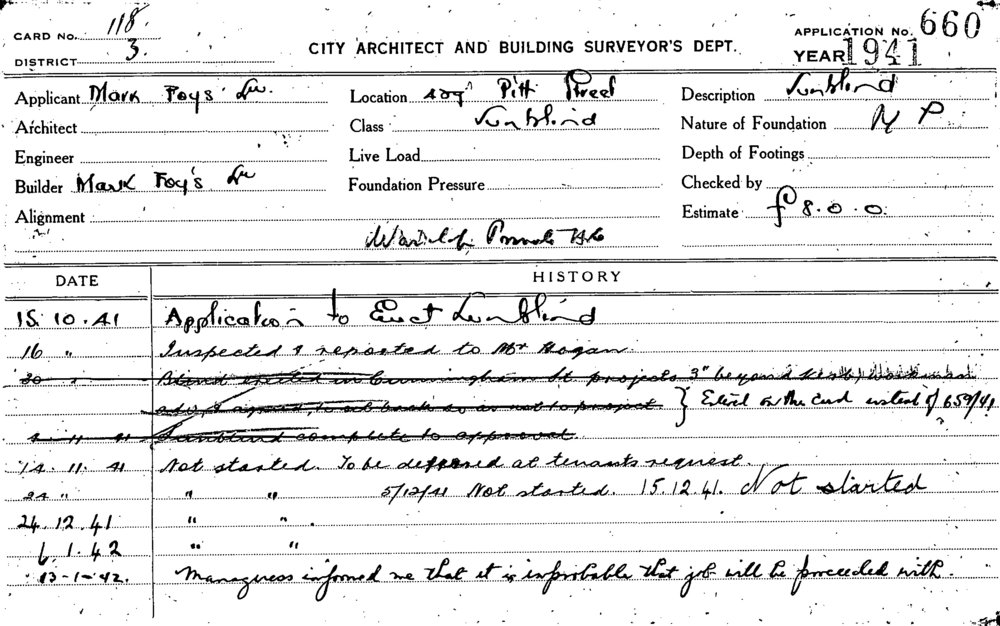 CARD No. 118.
DISTRICT 3.
CITY ARCHITECT AND BUILDING SURVEYOR'S DEPT.
APPLICATION No. 660
YEAR 1941
Applicant Mark Foys Ltd.
Location Pitt Street
Description Sunblind
Architect
Class Sunblind
Nature of Foundation
Engineer
Live Load
Depth of Footings
Builder Mark Foy's Ltd
Foundation Pressure
Checked by
Alignment
Estimate £8.0.0.
Private
DATE
HISTORY
15.10.41 Application to Erect Sunblind
16 " Inspected & reported to Mr Hogan.
30 " Blind erected in Cunningham St projects 3" beyond kerb,
agreed to set back so as not to project } Entered on this card instead of 659/41
11 41 Sunblind complete to approval.
14. 11. 41 Not started. To be deferred at tenants request.
24 " " " 5/12/41 Not started. 15.12.41. Not started
24.12.41 " " .
6.1.42 " "
13-1-42. Manageress informed me that it is improbable that job will be proceeded with.